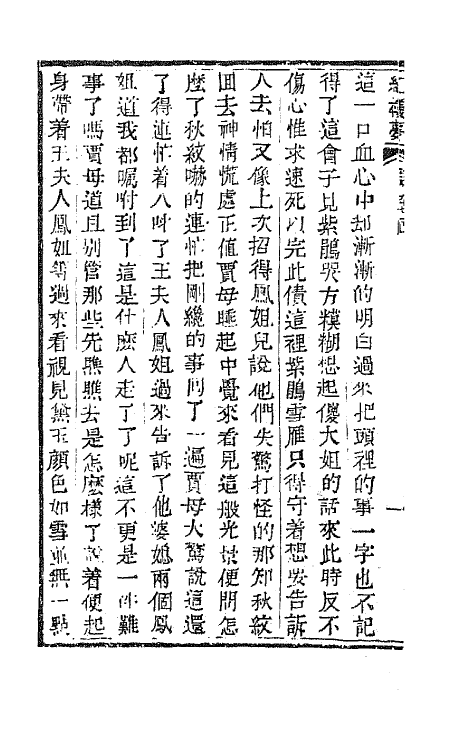 紅樓夢
這一口血心中却漸漸的明白過來把頭裡的事一字也不記
得了這會子見紫鵑哭方模糊想起傻大姐的話來此時反不
傷心惟求速死以完此債這裡紫鵑雪雁只得守着想要告訴
人去怕又像上次招得鳳姐兒說他們失驚打怪的那知秋紋
回去神情慌處正值賈母睡起中覺來看見這般光景便問怎
麽了秋紋嚇的連忙把剛纔的事囘了一遍賈母大驚說這還
了得連忙着人呌了王夫人鳳姐過來告訴了他婆媳兩個鳳
姐道我都囑咐到了這是什麽人走了了呢這不更是一件難
事了嗎賈母道且別管那些先瞧瞧去是怎麽樣了說着便起
身帶着王夫人鳳姐等過來看視見黛玉顏色如雪並無一點